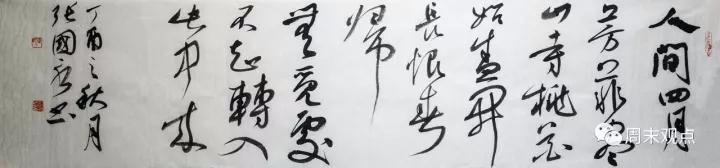 人間四月
芳菲尽
山寺桃花
始盛開
長恨春
帰
無覓處
不知轉入
此中來
丁酉之秋月
張國書
周末观点